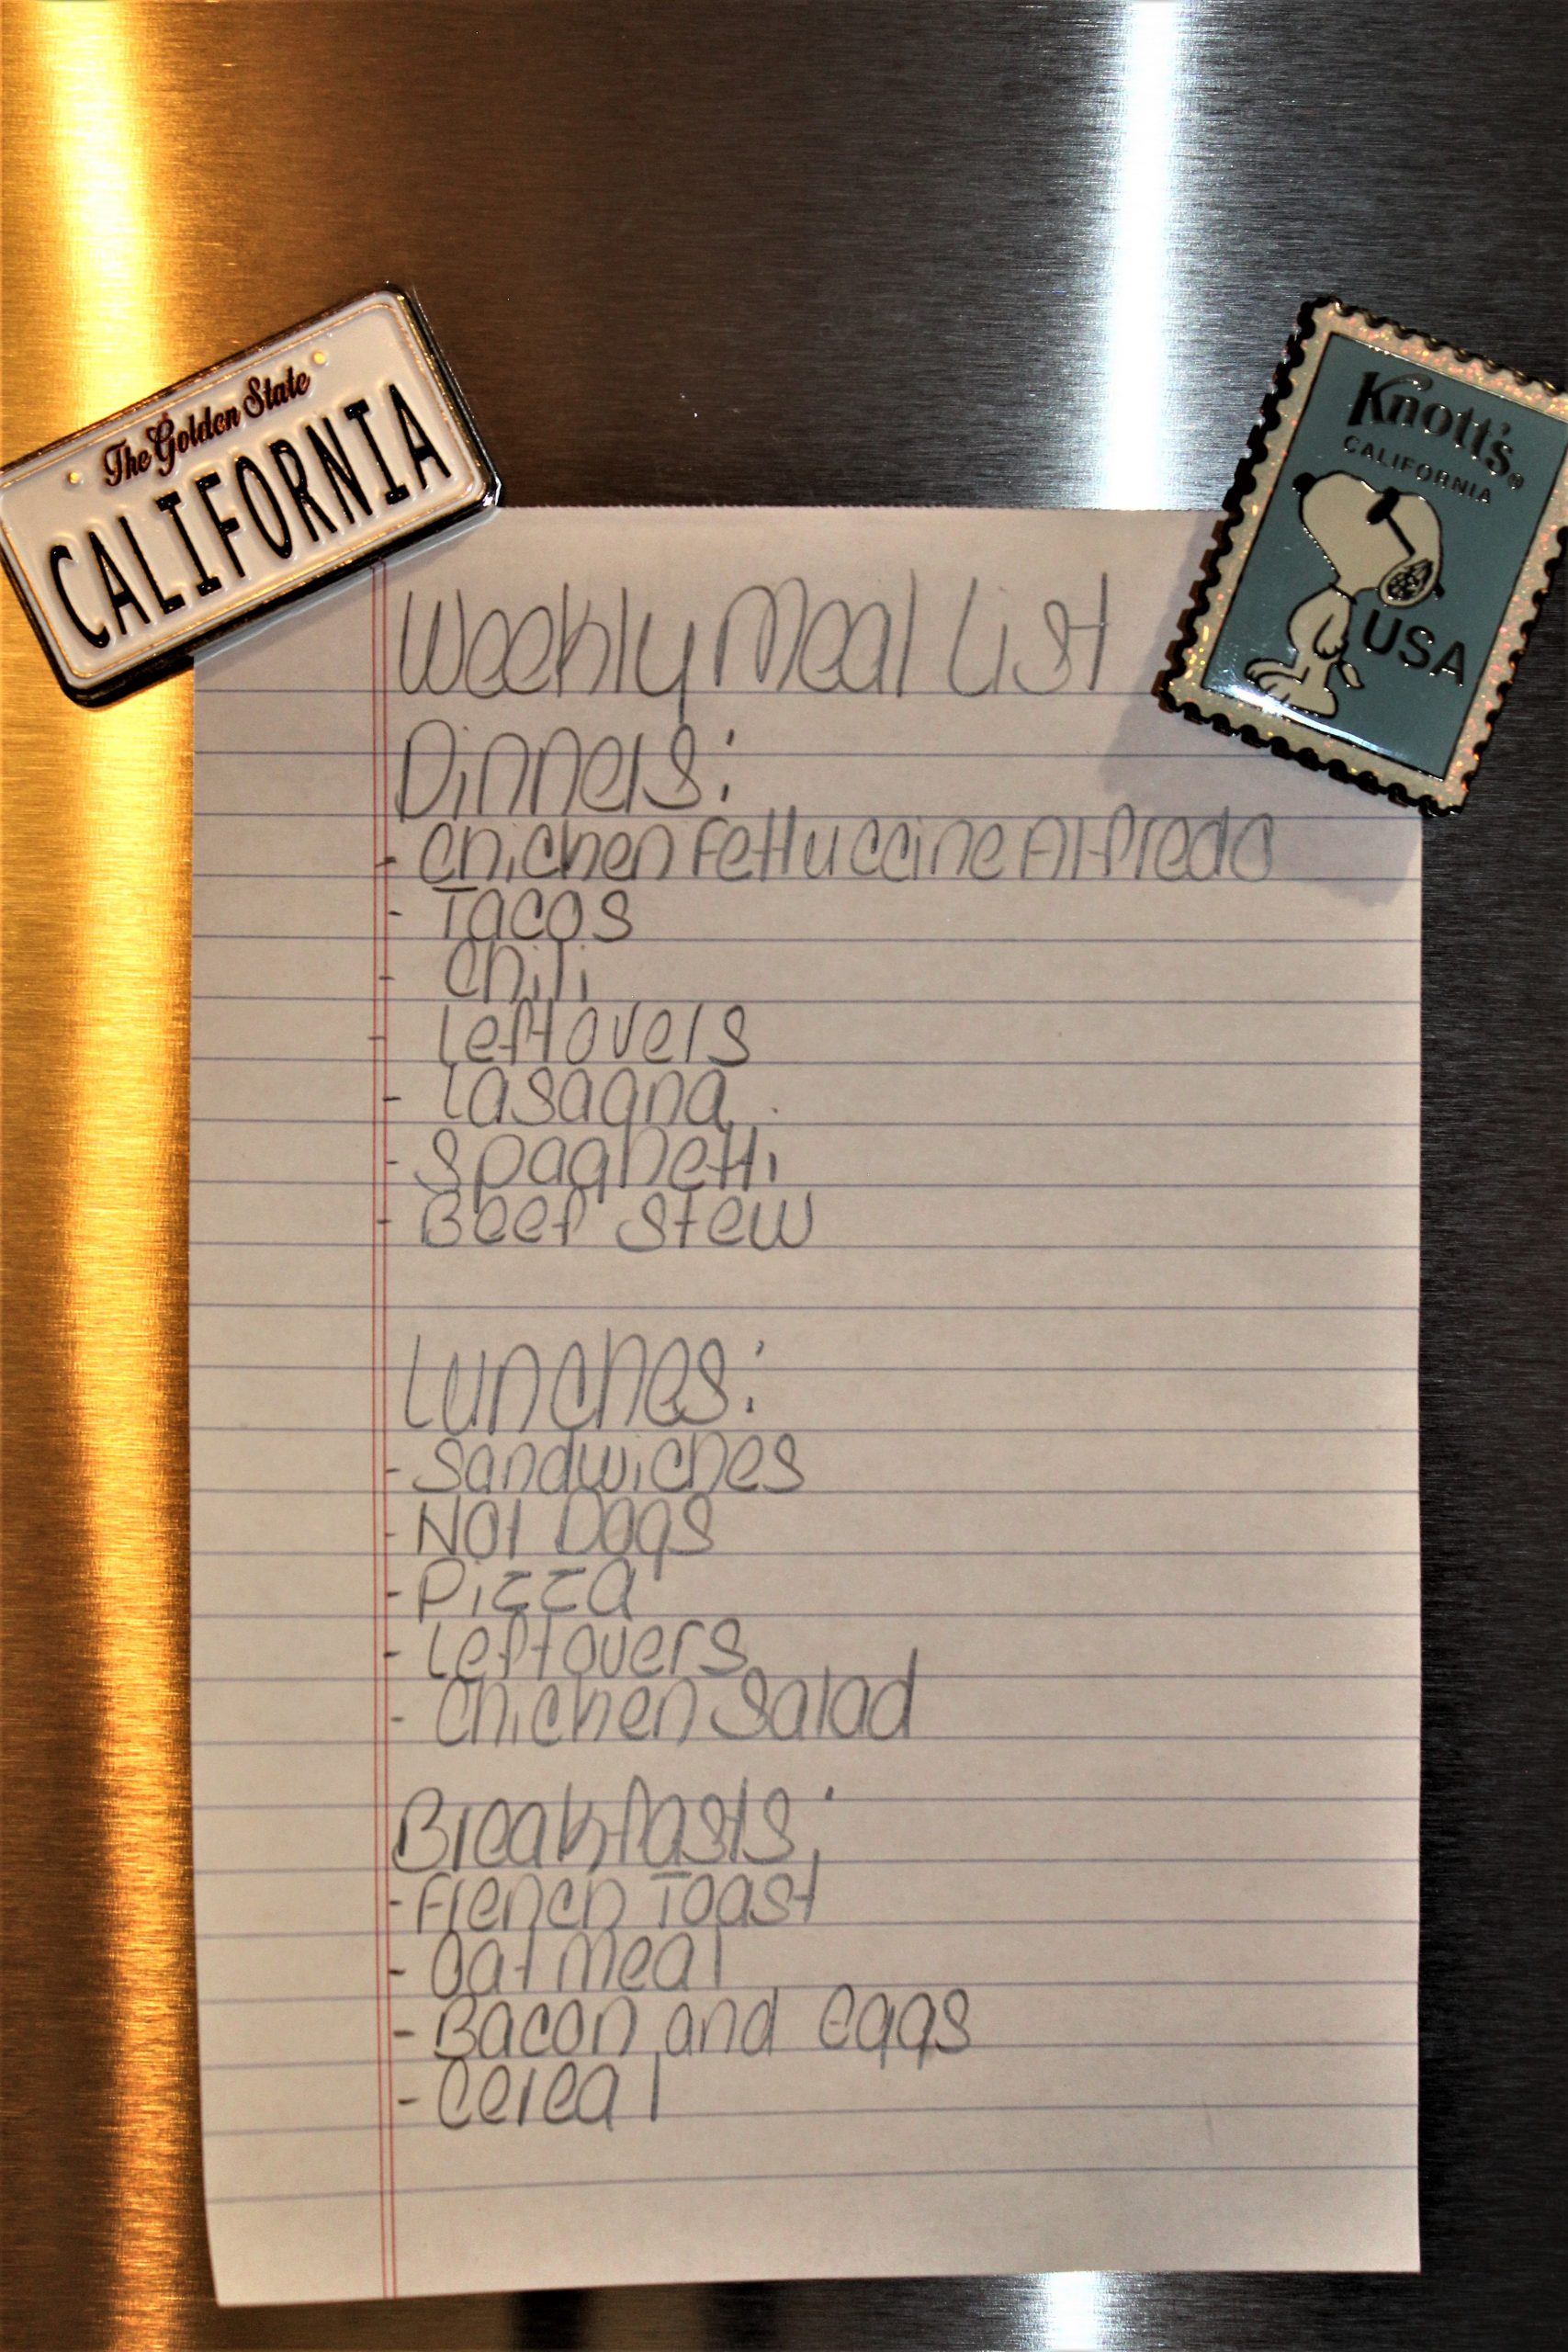 The Golden State
CALIFORNIA
Knott's®
CALIFORNIA
USA
Weekly Meal List
Dinners:
- Chicken Fettuccine Alfredo
- Tacos
- Chili
- Leftovers
- Lasagna
- Spaghetti
- Beef Stew
Lunches:
- Sandwiches
- Hot Dogs
- Pizza
- Leftovers
- Chicken Salad
Breakfasts:
- French Toast
- Oatmeal
- Bacon and eggs
- Cereal